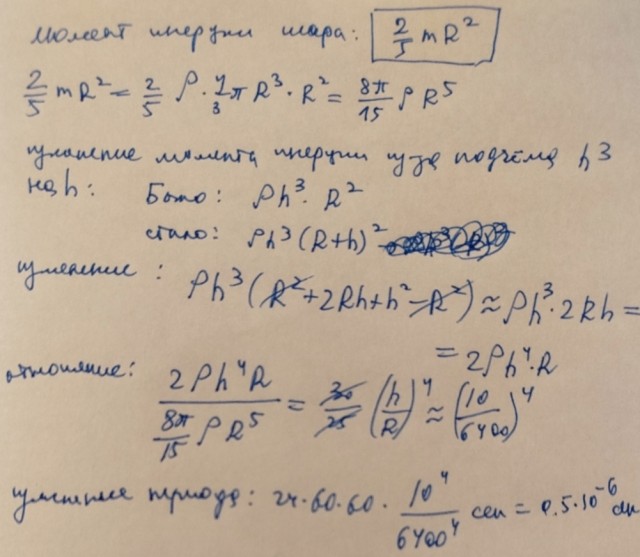 Момент инерции шара: 2/5 mR²
2/5 mR² = 2/5 ρ · 4/3 π R³ · R² = 8π/15 ρ R⁵
изменение момента инерции из-за подъёма h³
на h: Было: ρh³ · R²
стало: ρh³(R+h)²
изменение: ρh³(R² + 2Rh + h² − R²) ≈ ρh³ · 2Rh =
= 2ρh⁴ · R
отношение: 2ρh⁴R / (8π/15 ρR⁵) = (h/R)⁴ ≈ (10/6400)⁴
изменение периода: 24·60·60 · 10⁴/6400⁴ сек = 0.5·10⁻⁶